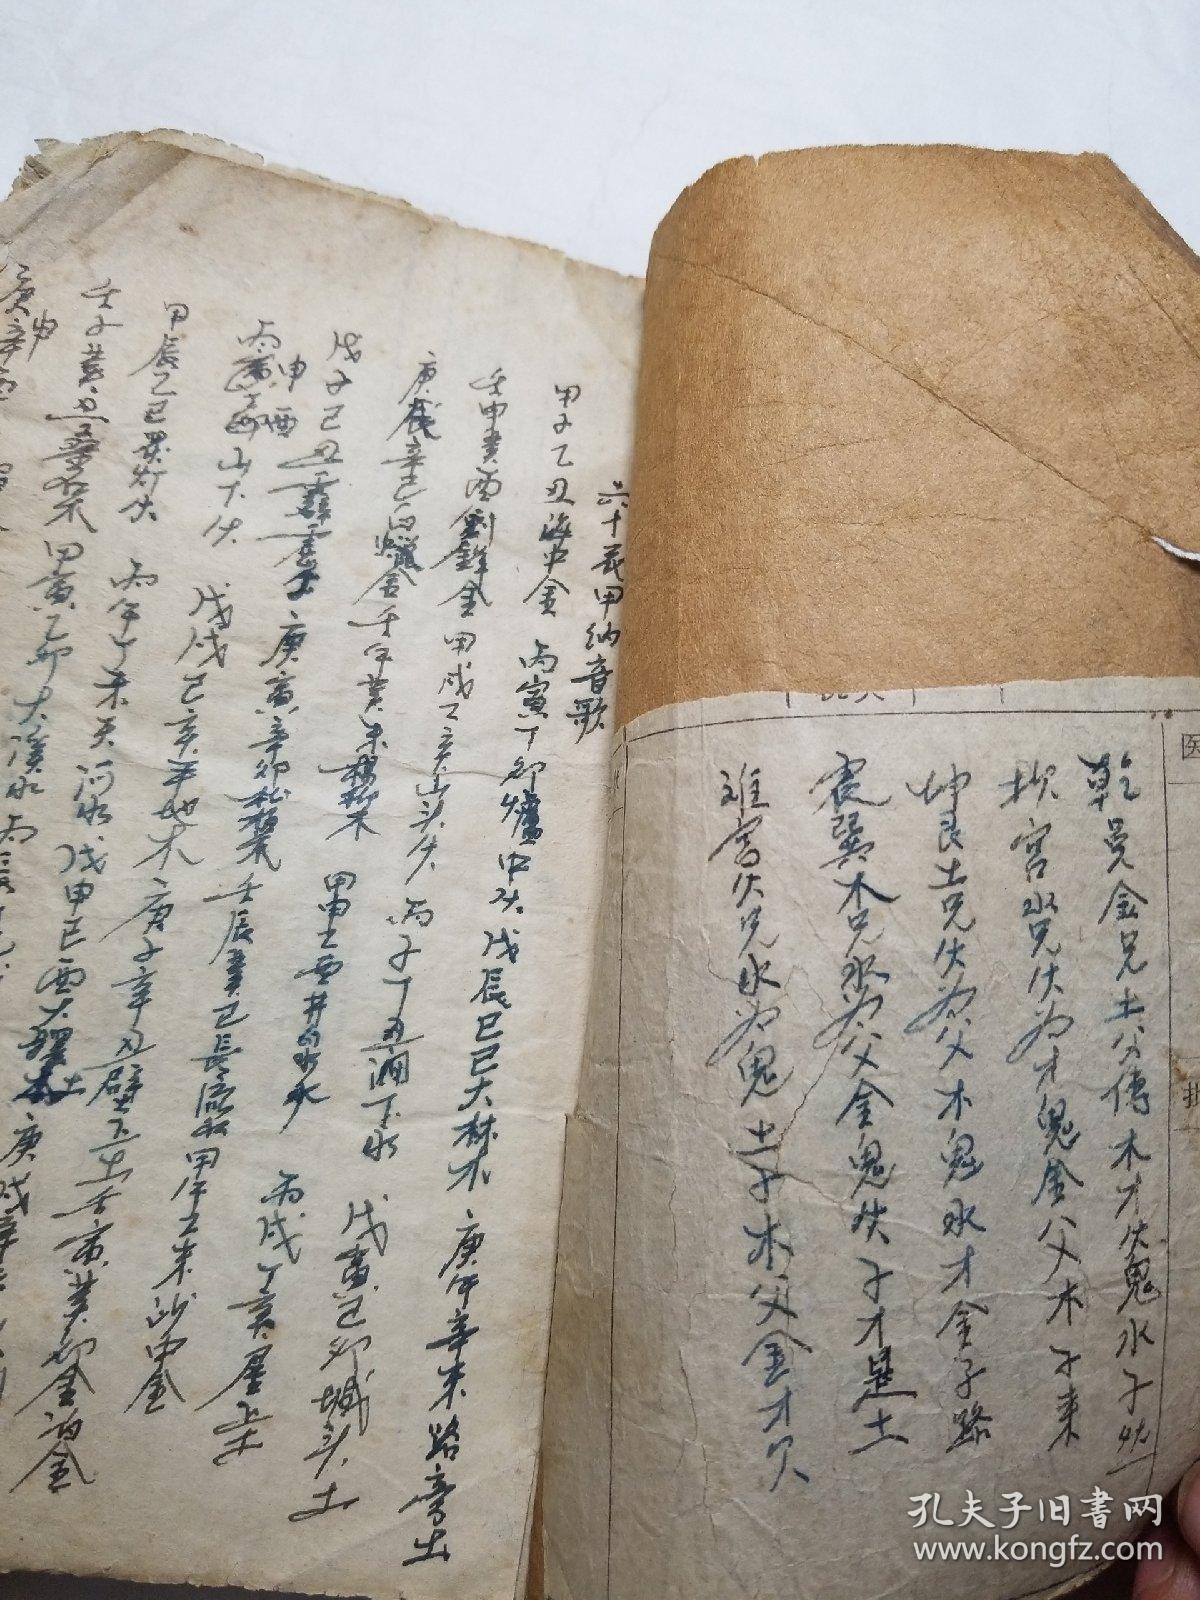 乾 金兄土父傳木才火鬼水子
坎宮水兄火为才鬼金父木子来
坤艮土兄火为父木鬼水才金子路
震巽木兄水为父金鬼火子才是土
宮火兄水为鬼土子木父金才
六十花甲纳音歌
甲子乙丑海中金 丙寅丁卯爐中火 戊辰己巳大林木 庚午辛未路旁土
壬申癸酉劍鋒金 甲戌乙亥山头火 丙子丁丑涧下水 戊寅己卯城头土
庚辰辛巳白蠟金 壬午癸未楊柳木 甲申乙酉井泉水 丙戌丁亥屋上土
戊子己丑霹雳火 庚寅辛卯松柏木 壬辰癸巳長流水 甲午乙未沙中金
丙申丁酉山下火 戊戌己亥平地木 庚子辛丑壁上土 壬寅癸卯金泊金
甲辰乙巳 灯火 丙午丁未天河水 戊申己酉大驛土 庚戌辛
壬子癸丑桑柘木 甲寅乙卯大溪水 丙辰
庚申辛酉
孔夫子旧书网
www.kongfz.com